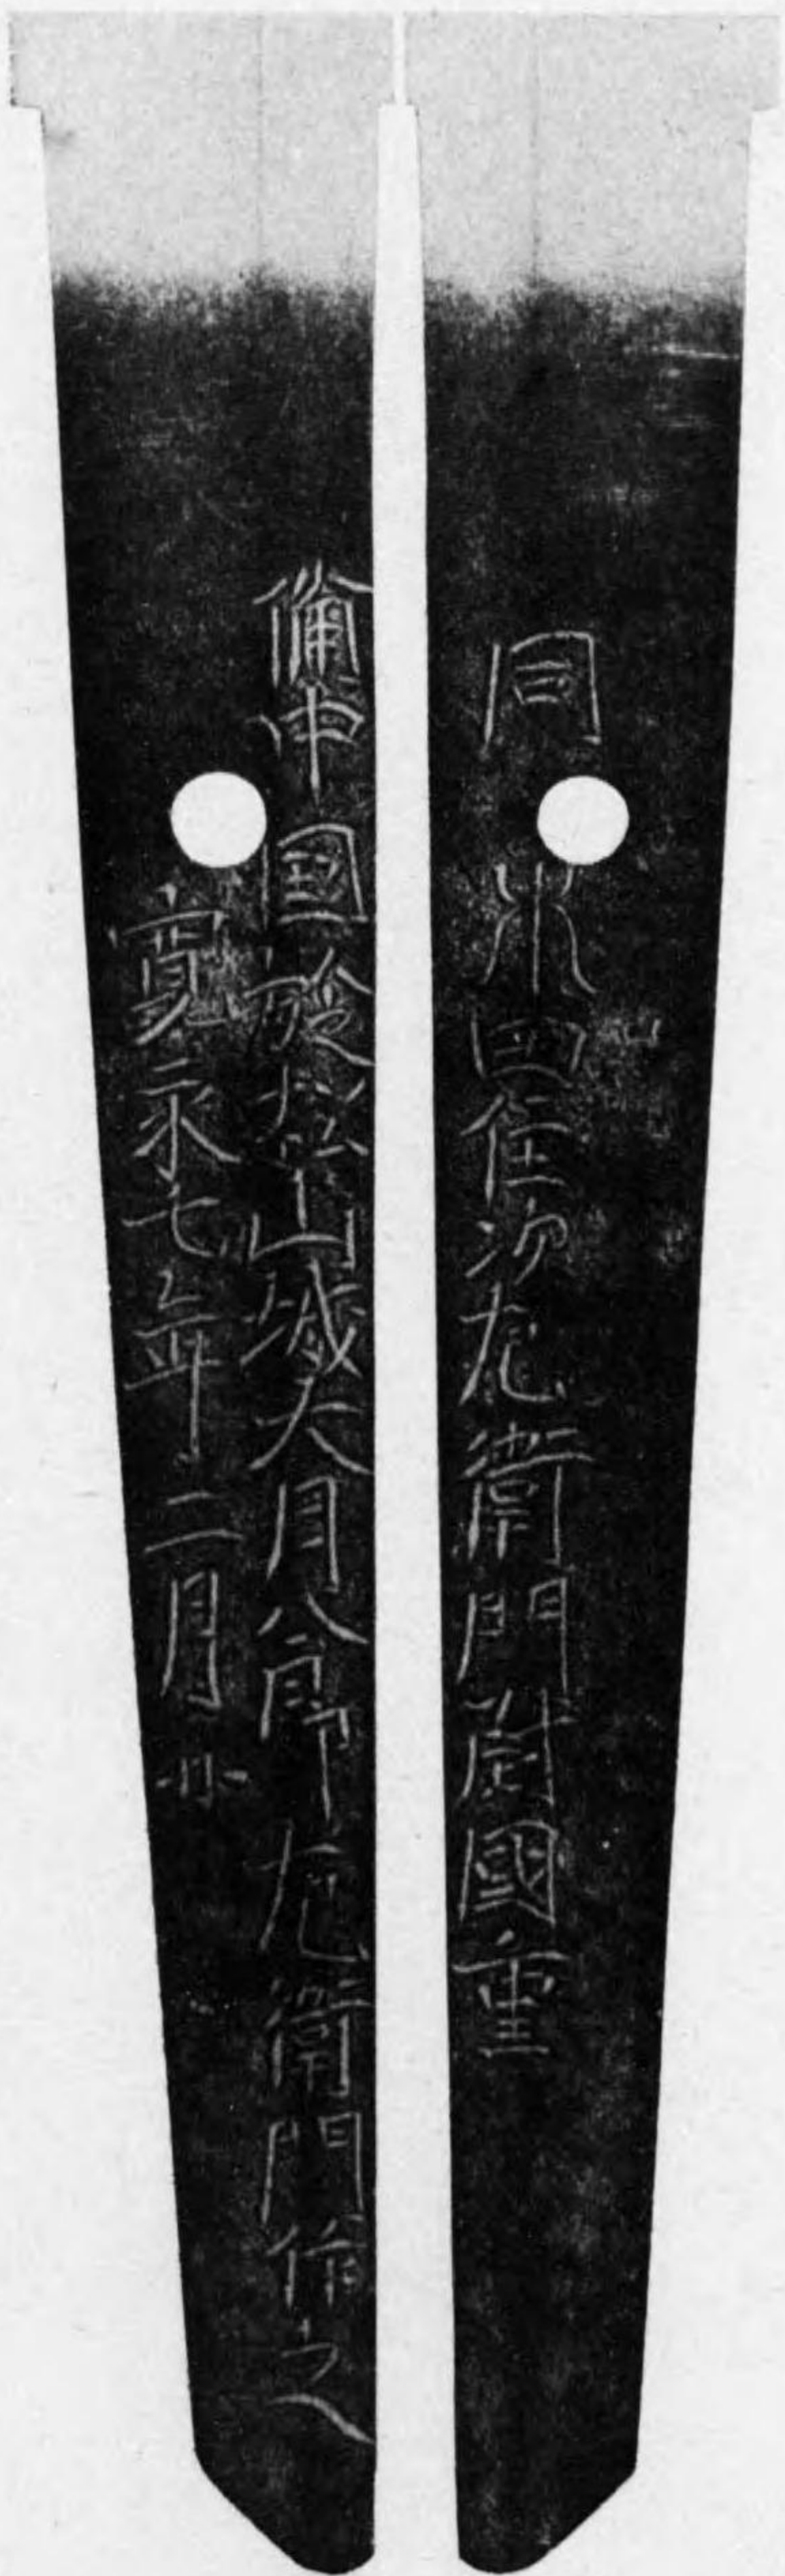 同水田住次左衛門尉國重
備中國於松山城大月八郎左衛門作之
寛永七年二月日